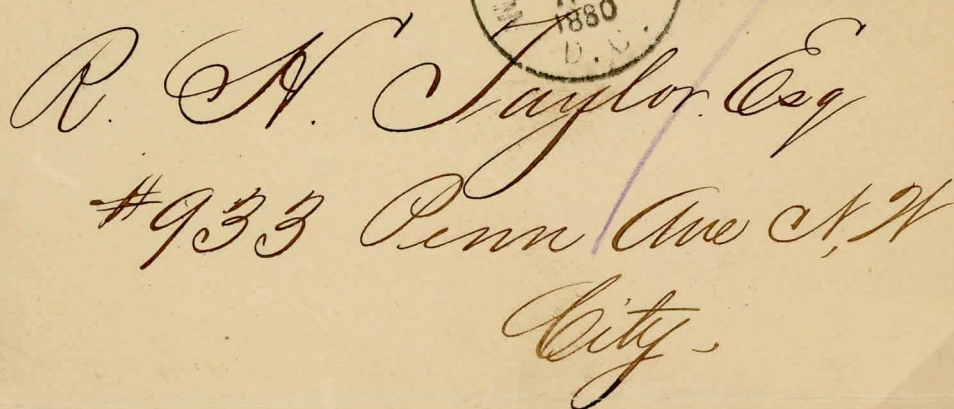 1880
D. C.
R. H. Taylor. Esq
#933 Penn Ave N, W
City.